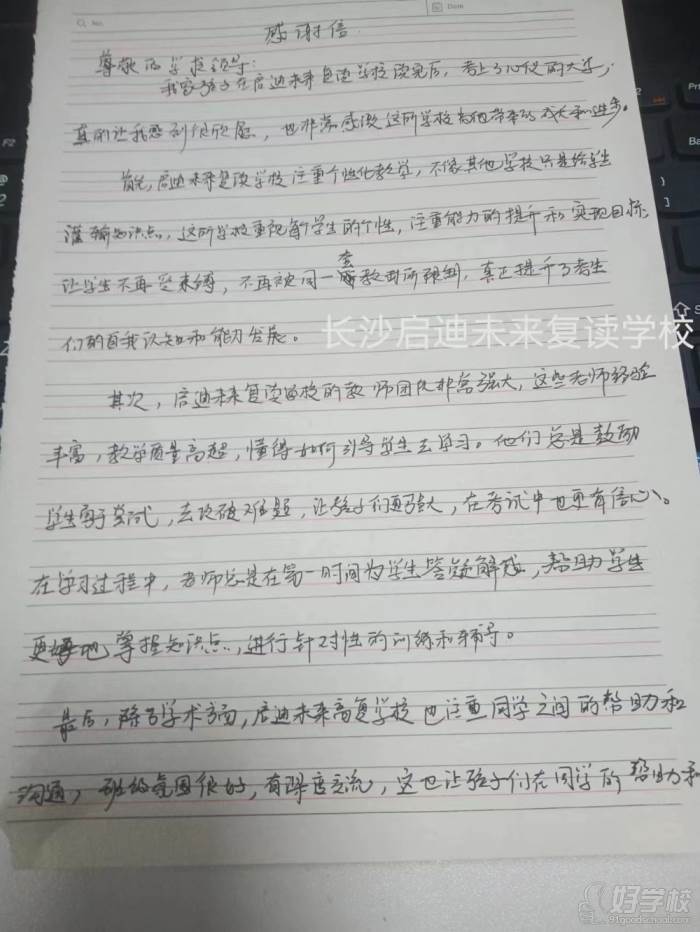 No.
Date
感谢信
尊敬的学校领导:
我家孩子在启迪未来复读学校读完后,考上了心仪的大学,
真的让我感到很欣慰,也非常感谢这所学校为他带来的成长和进步。
首先,启迪未来复读学校注重个性化教学,不像其他学校只是给学生
灌输知识点,这所学校重视每个学生的个性,注重能力的提升和实现目标,
让学生不再受束缚,不再被同一套教材所限制,真正提升了考生
们的自我认知和能力发展。
长沙启迪未来复读学校
其次,启迪未来复读学校的教师团队非常强大,这些老师经验
丰富,教学质量高超,懂得如何引导学生去学习。他们总是鼓励
学生勇于尝试,去攻破难题,让孩子们更强大,在考试中也更有信心。
在学习过程中,老师总是在第一时间为学生答疑解惑,帮助学生
更好地掌握知识点,进行针对性的训练和辅导。
最后,除了学术方面,启迪未来高复学校也注重同学之间的帮助和
沟通,班级氛围很好,有深度交流,这也让孩子们在同学的帮助和
好学校
91goodschool.com